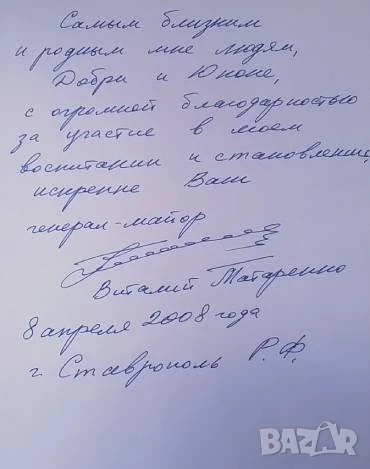 Самым близким
и родным мне людям,
Добри и Юноне,
с огромной благодарностью
за участие в моем
воспитании и становлении,
искренне Ваш
генерал-майор
Виталий Татаренко
8 апреля 2008 года
г. Ставрополь Р.Ф.
BAZAR